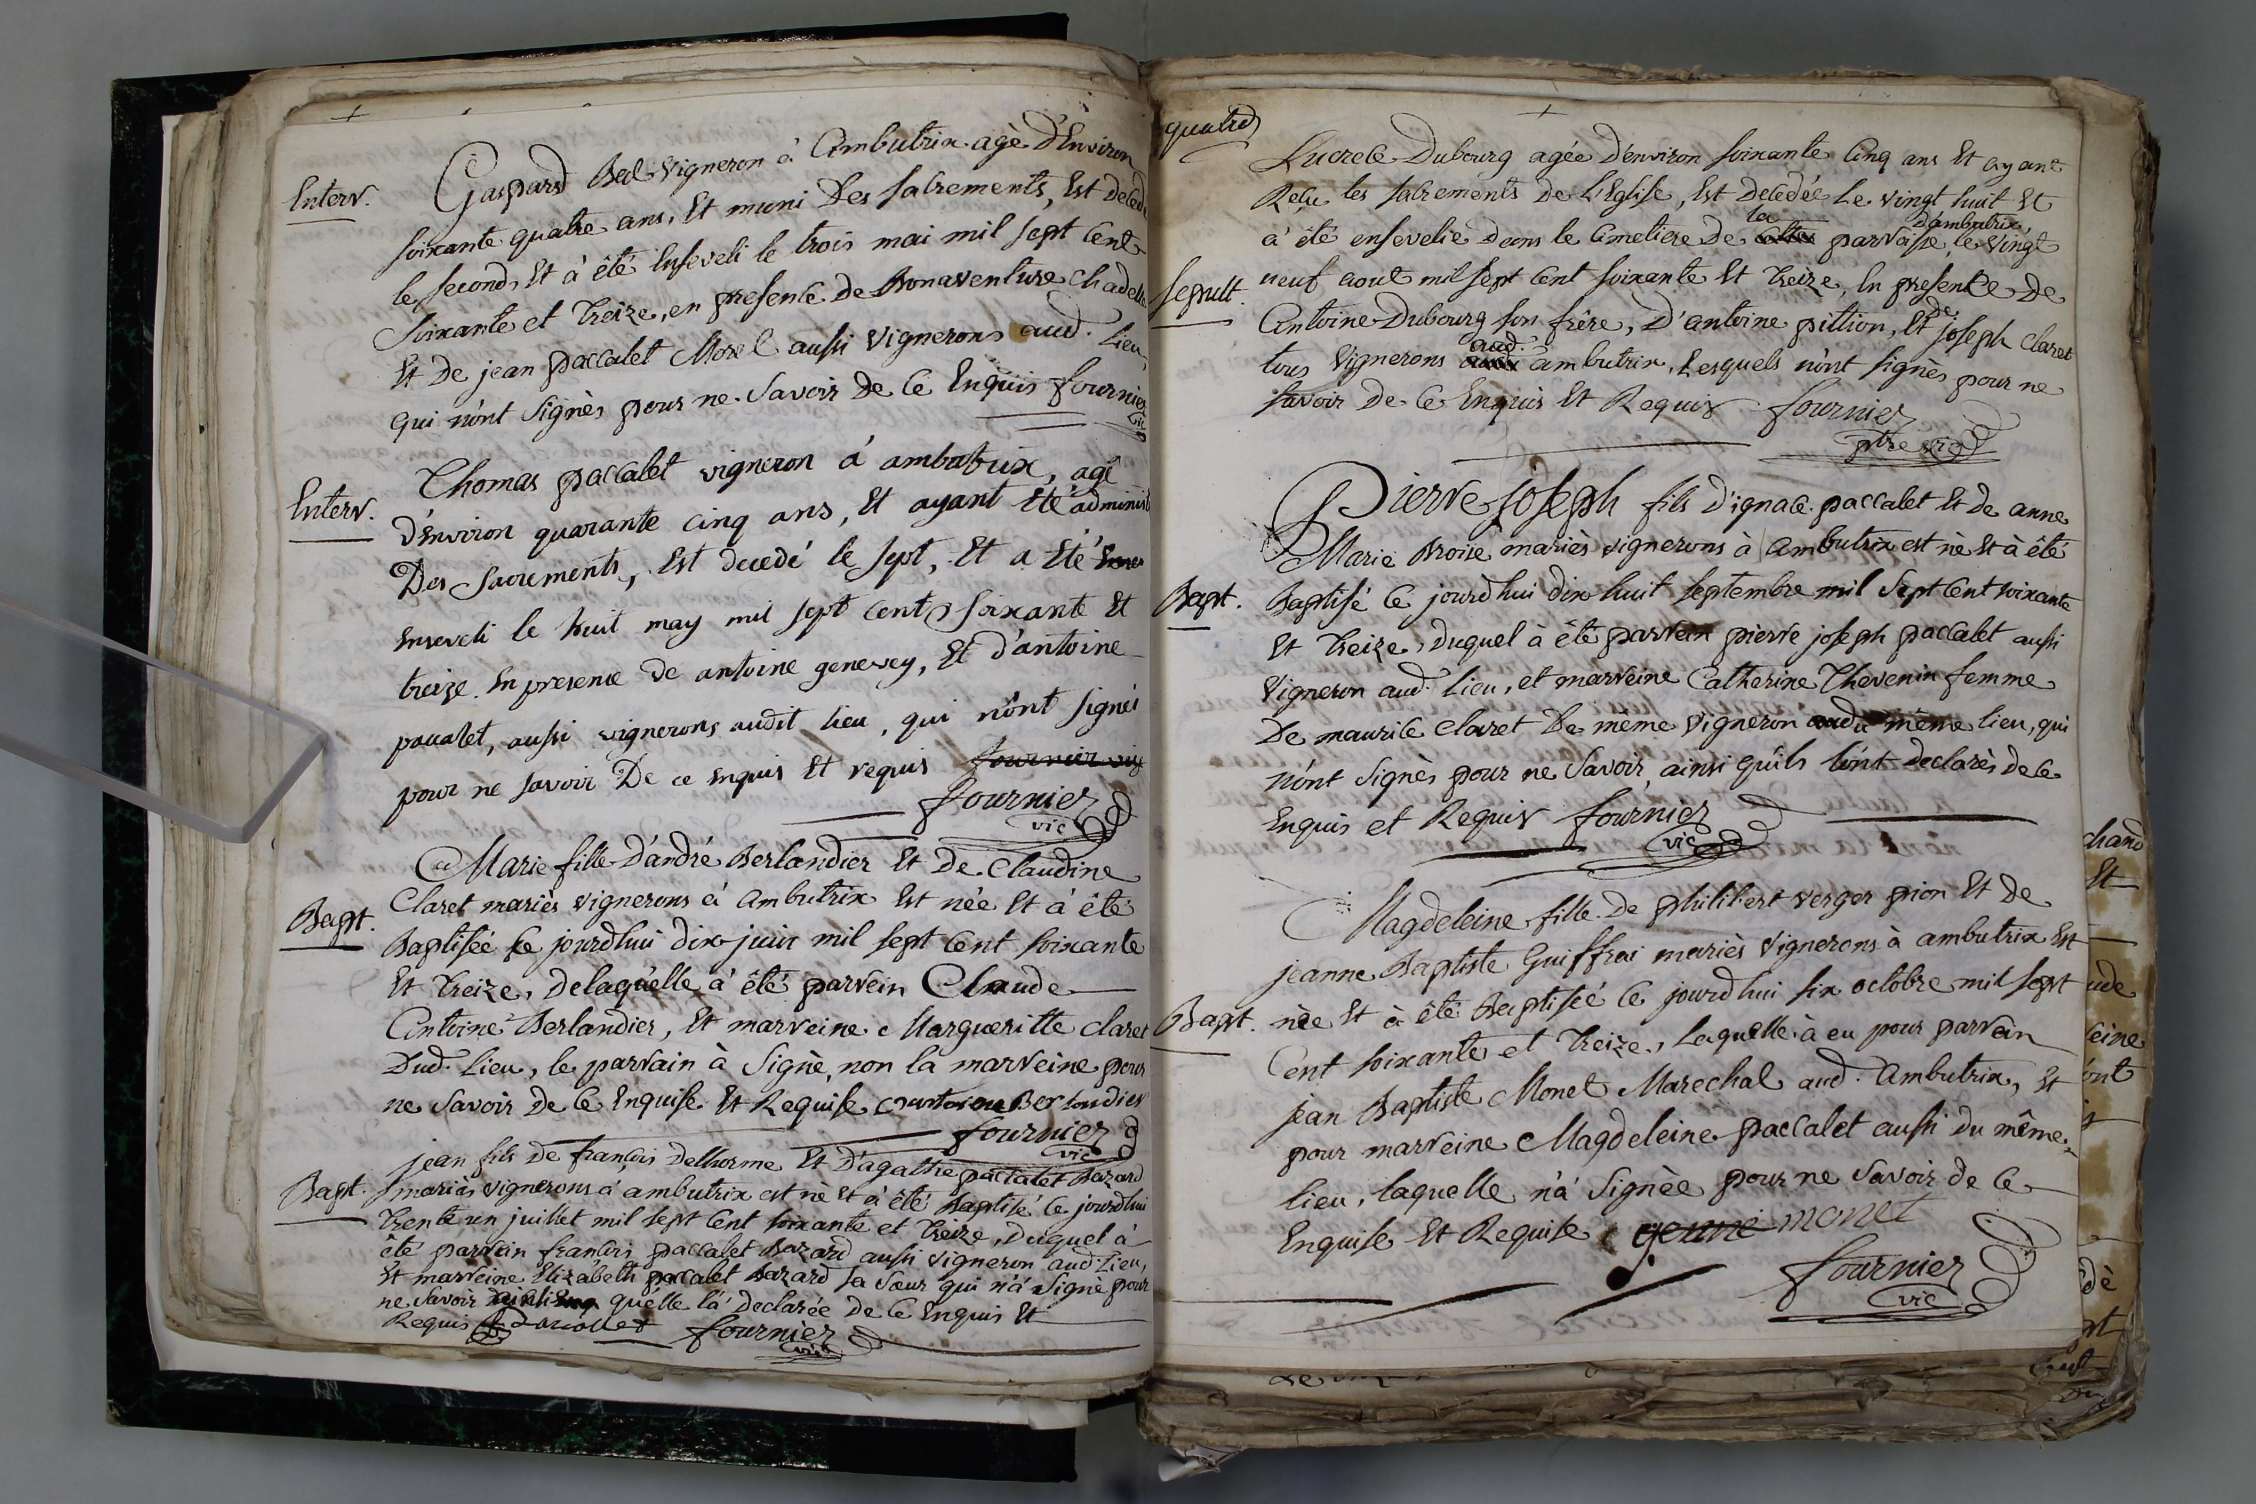 Enterr.
Gaspard Bel Vigneron à Ambutrix agè d'Environ
soixante quatre ans, Et muni Des sacrements, Est decedé
le second, Et à été Enseveli le trois mai mil sept Cent
soixante et Treize, en presence de Bonaventure Chadelle
Et De jean paccalet Morel aussi Vignerons aud. Lieu,
qui n'ônt Signès pour ne Savoir De Ce Enquis fournier
vic
Enterr.
Thomas paccalet vigneron à ambutrix, agé
d'Environ quarante cinq ans, Et ayant Eté administré
Des sacrements, Est decedé le sept, Et a Eté
Enseveli le huit may mil sept cent soixante Et
treize. En presence de antoine genevey, Et d'antoine
pacalet, aussi vignerons audit lieu, qui n'ônt signés
pour ne savoir De ce Enquis Et requis fournier vic
fournier
vic
Bapt.
Marie fille D'andré Berlandier Et De Claudine
Claret mariès vignerons à Ambutrix Est née Et à été
Baptisée Ce jourd'hui dix juin mil sept Cent soixante
Et Treize, Delaquelle à été parrein Claude
Antoine Berlandier, Et marreine Margueritte Claret
Dud. Lieu, le parrain à Signè, non la marreine pour
ne Savoir de Ce Enquise Et Requise antoine Berlandier
fournier
vic
Bapt.
jean fils De françois Delhorme Et D'agathe paccalet Bazard
mariès vignerons à ambutrix est nè Et à été Baptisé Ce jourd'hui
Trente un juillet mil sept Cent soixante et Treize, Duquel à
été parrein françois paccalet Bazard aussi vigneron aud. Lieu,
Et marreine Elizabeth paccalet Bazard sa Sœur qui n'à Signè pour
ne Savoir qu'elle l'à Declarée De Ce Enquis Et
Requis fournier
vic
quatre
Lucrece Dubourg agée d'environ soixante Cinq ans Et ayant
Reçu les sacrements de L'Eglise, Est Decedée Le vingt huit Et
à été ensevelie dans le Cimetiere De la parroisse d'ambutrix, le vingt
Sepult.
neuf aout mil sept Cent soixante Et Treize, En presence De
Antoine Dubourg son frère, D'antoine pittion, Et de joseph Claret
tous vignerons aud. ambutrix, Lesquels n'ônt signès pour ne
Savoir De Ce Enquis Et Requis fournier
ptre vic
Pierre joseph fils D'ignace paccalet Et de anne
Marie Broire mariès vignerons à Ambutrix est nè Et à été
Bapt.
Baptisé Ce jourd'hui dix huit septembre mil Sept Cent soixante
Et Treize, Duquel à été parrein pierre joseph paccalet aussi
vigneron aud. Lieu, et marreine Catherine Thevenin femme
De maurice Claret De même vigneron du même lieu, qui
n'ônt Signès pour ne Savoir ainsi qu'ils l'ônt declarès de Ce
Enquis et Requis fournier
vic
Magdeleine fille de philibert verger pion Et de
jeanne Baptiste Guiffrai mariès vignerons à ambutrix Est
Bapt.
née Et à été Baptisée Ce jourd'hui six octobre mil sept
Cent soixante et Treize, Laquelle à eu pour parrein
jean Baptiste Monet Marechal aud. Ambutrix, Et
pour marreine Magdeleine paccalet aussi du même
lieu, laquelle n'à Signèe pour ne Savoir de Ce
Enquise Et Requise monet
fournier
vic